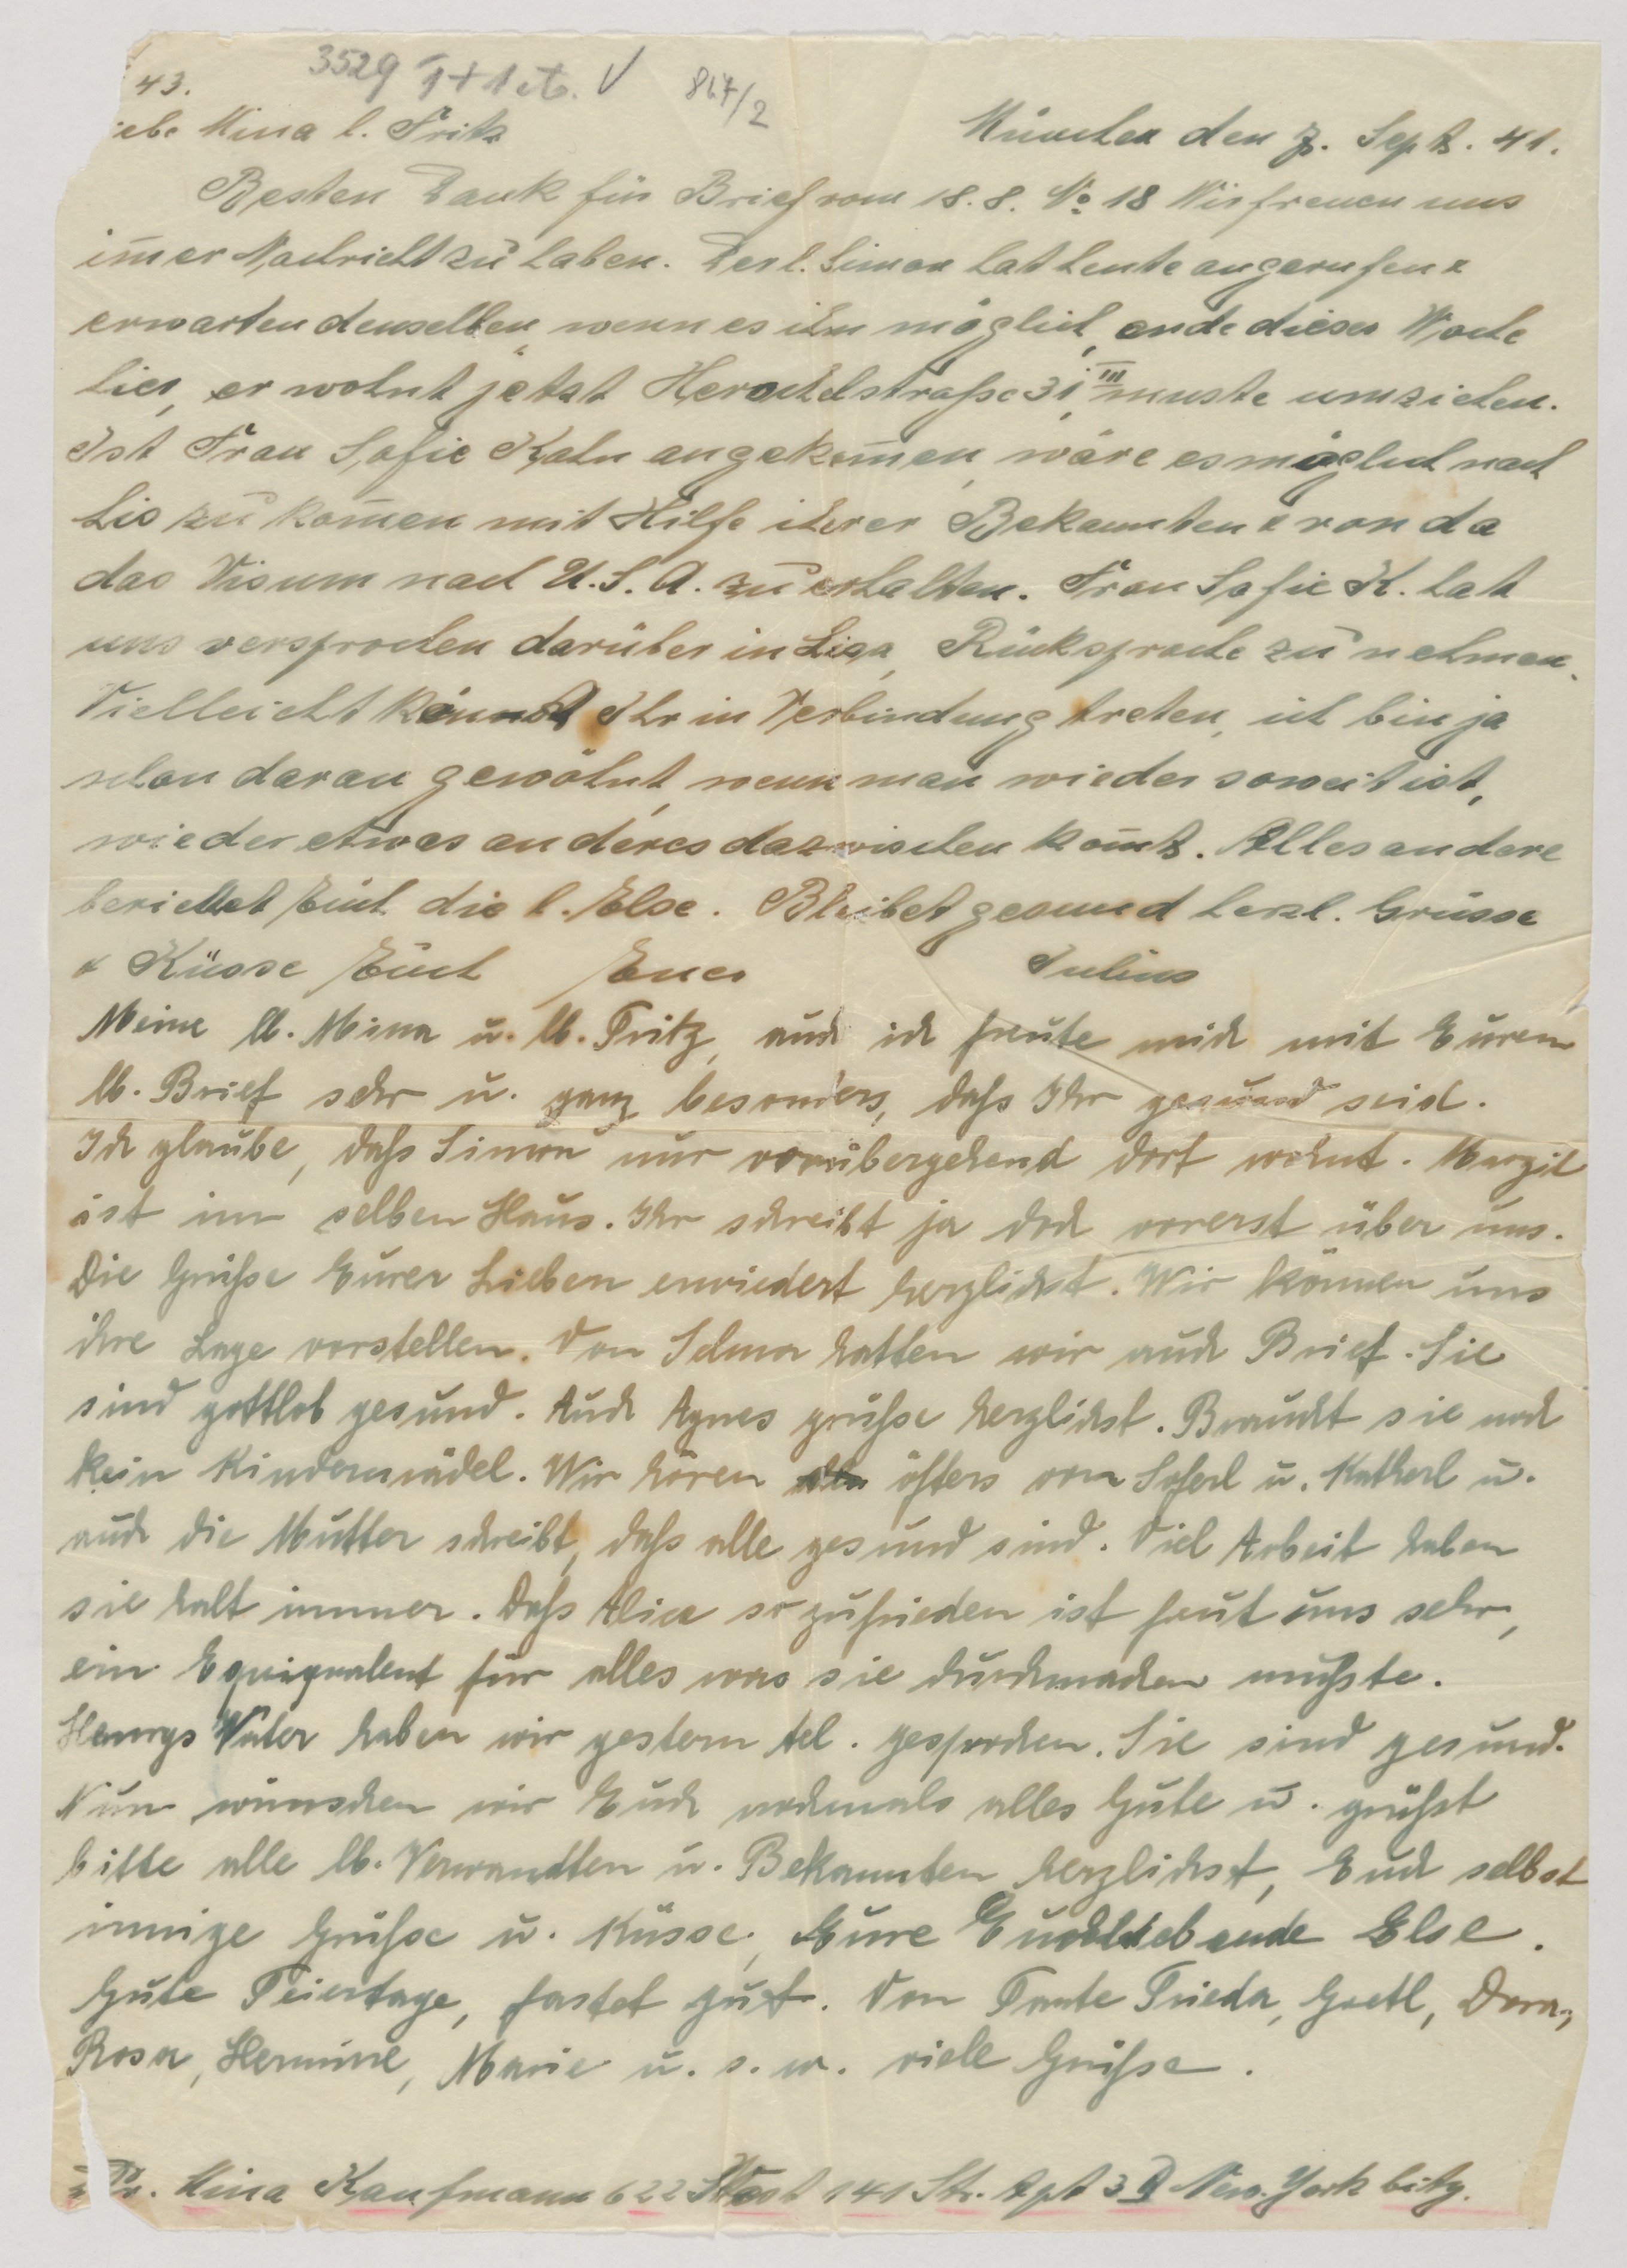 43.
3529 I + 1 et. V 867/2
München den 7. Sept. 41.
iebe Mina l. Fritz
Besten Dank für Brief vom 18.8. No 18 Wir freuen uns
im̅er Nachricht zu haben. Der l. Simon hat heute angerufen &
erwarten denselben, wenn es ihm möglich, ende dieser Woche
hier, er wohnt jetzt Herschelstraße 31 III, muste umziehen.
Ist Frau Sofie Kahn angekom̅en, wäre es möglich nach
Lis zu kom̅en mit Hilfe ihrer Bekannten & von da
das Visum nach U.S.A. zu erhalten. Frau Sofie K. hat
uns versprochen darüber in Rücksprache zu nehmen.
Vielleicht könnt Ihr in Verbindung treten, ich bin ja
schon daran gewöhnt, wenn man wieder soweit ist,
wieder etwas anderes dazwischen kom̅t. Alles andere
berichtet Euch die l. Else. Bleibet gesund herzl. Grüsse
& Küsse Euch Euer Julius
Meine lb. Mina u. lb. Fritz, auch ich freute mich mit Eurem
lb. Brief sehr u. ganz besonders, daß Ihr gesund seid.
Ich glaube, daß Simon nur vorübergehend dort wohnt. Margit
ist im selben Haus. Ihr schreibt ja doch vorerst über uns.
Die Grüße Eurer Lieben erwiedert herzlichst. Wir können uns
ihre Lage vorstellen. Von Selma hatten wir auch Brief. Sie
sind gottlob gesund. Auch Agnes grüße herzlichst. Braucht sie noch
kein Kindermädel. Wir hören öfters von Soferl u. Katherl u.
auch die Mutter schreibt, daß alle gesund sind. Viel Arbeit haben
sie halt immer. Daß Alice so zufrieden ist freut uns sehr,
ein Equiqualent für alles was sie durchmachen mußte.
Henrys Vater haben wir gestern tel. gesprochen. Sie sind gesund.
Nun wünschen wir Euch nochmals alles Gute u. grüßt
bitte alle lb. Verwandten u. Bekannten herzlichst, Euch selbst
innige Grüße u. Küsse, Eure Euchliebende Else.
Gute Feiertage, fastet gut. Von Tante Frieda, Gretl, Dora,
Rosa, Hermine, Marie u. s. w. viele Grüße.
Fr. Mina Kaufmann 622 West 141 Str. Apt 3 D New. York City.